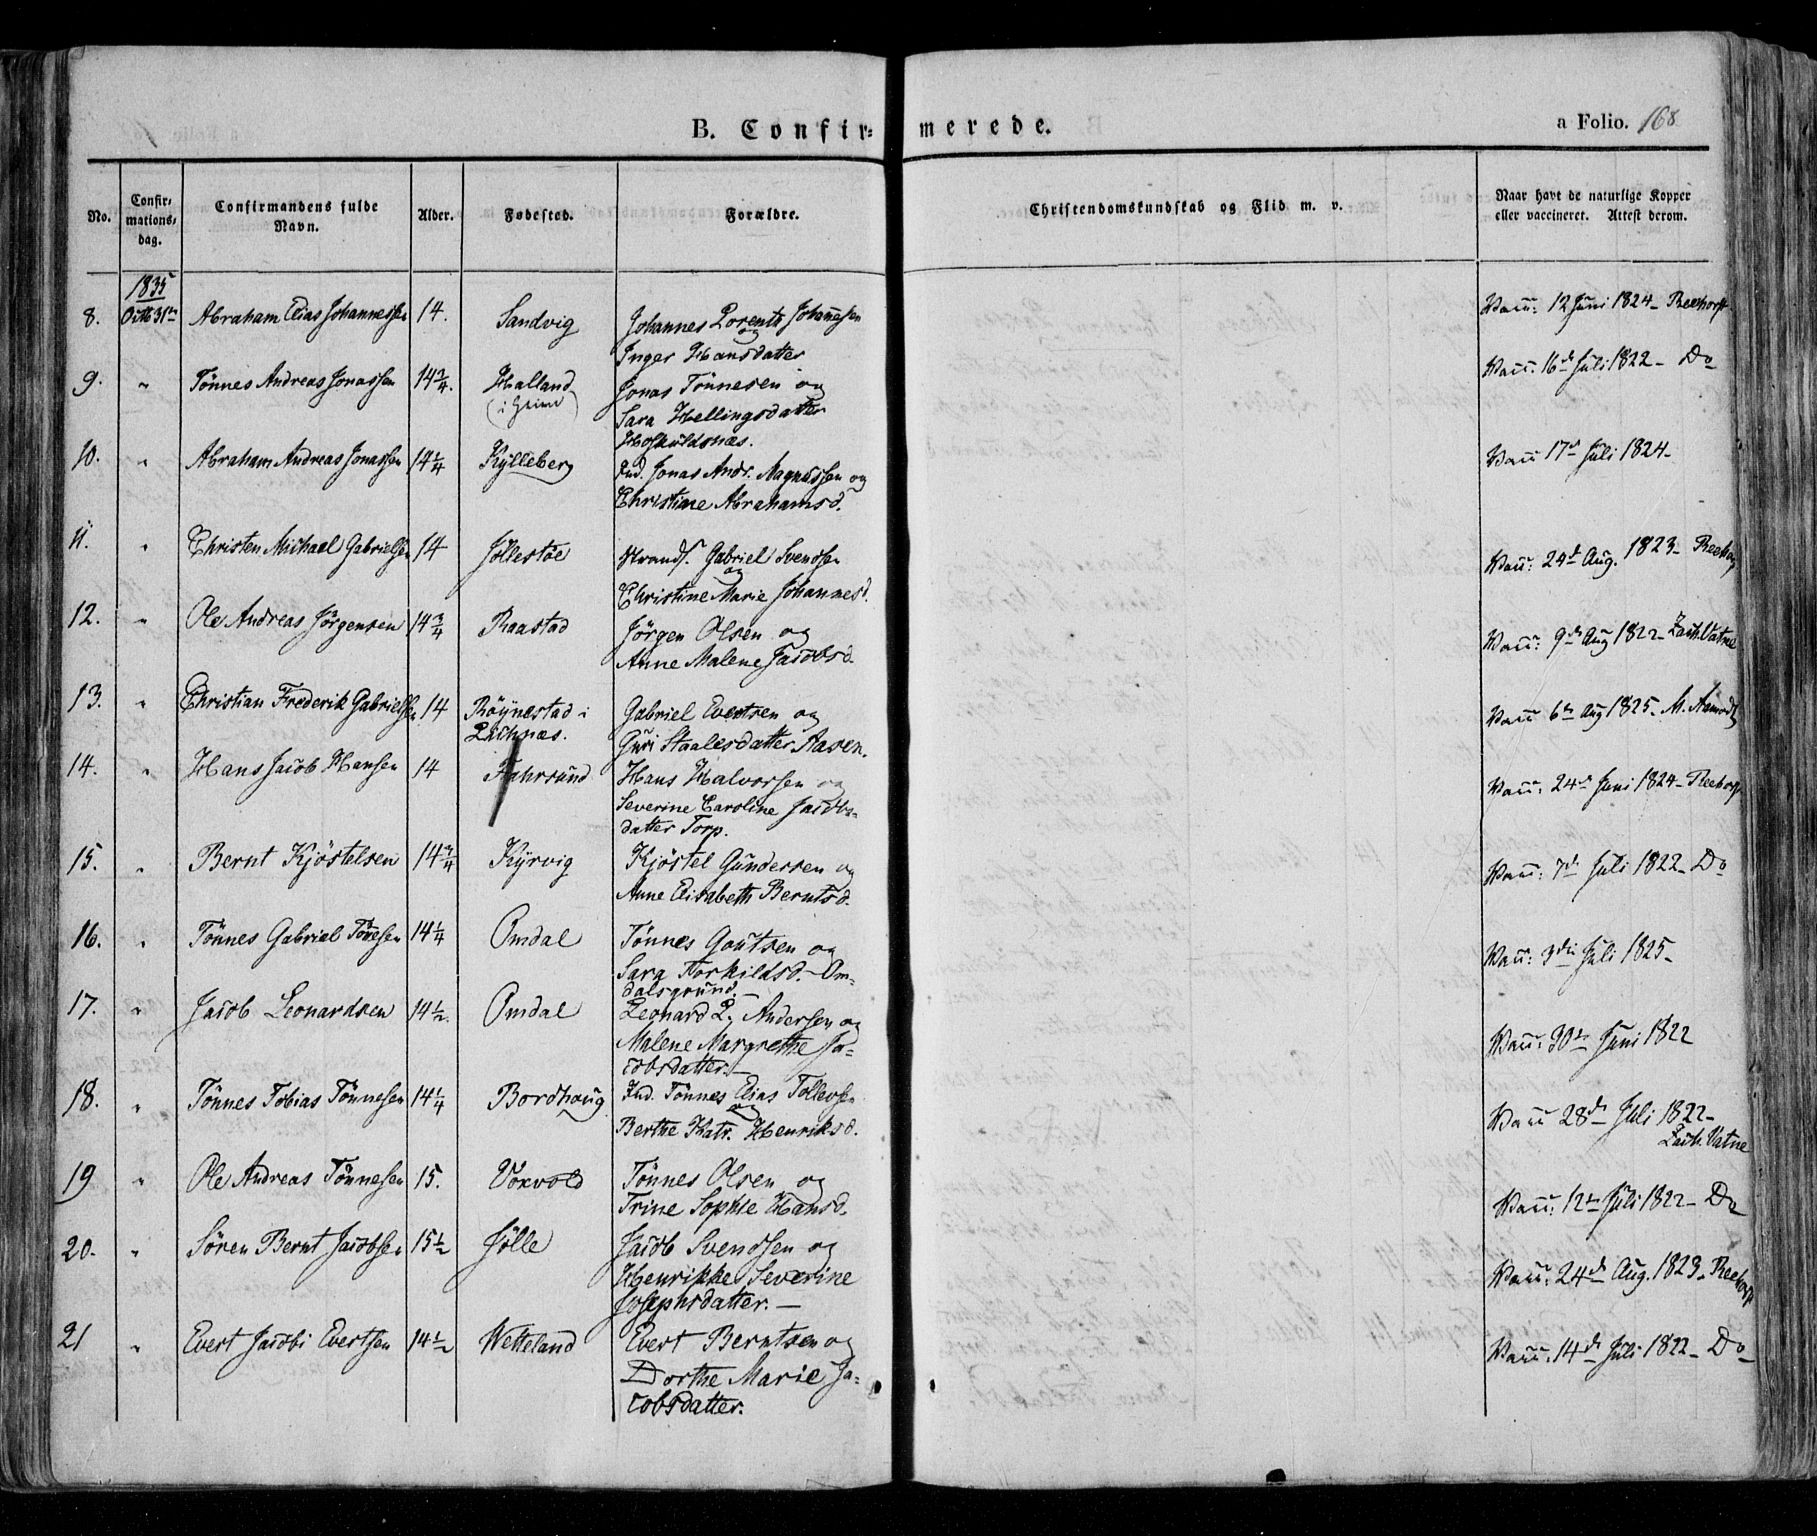 B. Confir- merede. a Folio. 168
No. Confir- mations- dag. Confirmandens fulde Navn. Alder. Fødested. Forældre. Christendomskundskab og Flid m. v. Naar havt de naturlige Kopper eller vaccineret. Attest derom.
1835
8. Octb 31te Abraham Elias Johannessen 14. Sandvig Johannes Lorents Johanesen Vacc: 12 Juni 1824 - Reehorst
og
Inger Hansdatter
9. " Tönnes Andreas Jonassen 14 3/4. Halland Jonas Tönnesen og Vacc: 16de Juli 1822 - Do
Sara Hellingsdatter
Hoskuldsnæs.
10. " Abraham Andreas Jonassen 14 1/4 Kylleberg Ind. Jonas Andr. Magnussen og Vacc 17de Juli 1824 -
Christiane Abrahamsd.
11. " Christen Michael Gabrielsen 14 Jöllestöe Strands. Gabriel Svendsen Vacc: 24de Aug. 1823 - Reehorst
og
Christine Marie Johannesd.
12. " Ole Andreas Jörgensen 14 3/4 Raastad Jörgen Olsen og Vacc: 9de Aug 1822 - Zach. Vatne
Anne Malene Jacobsd.
13. " Christian Frederik Gabrielsen 14 Röynestad i Gabriel Evertsen og Vacc 6te Aug 1825. M. Aamodt
Lichnæs. Guri Staalesdatter Aasen.
14. " Hans Jacob Hansen 14 Fahrsund Hans Halvorsen og Vacc: 24de Juni 1824 - Reehorst
Severine Caroline Jacobs-
datter Torp.
15. " Bernt Kjöstelsen 14 3/4 Kyrvig Kjöstel Gundersen og Vacc: 7de Juli 1822 - Do
Anne Elisabeth Berntsd.
16. " Tönnes Gabriel Tönesen 14 1/4 Omdal Tönnes Goutsen og Vacc: 3die Juli 1825 -
Sara Torkildsd. Om-
dalsgrund. -
17. " Jacob Leonardsen 14 1/2. Omdal Leonard L. Andersen og Vacc: 30te Juni 1822
Malene Margrethe Ja-
cobsdatter. -
18. " Tönnes Tobias Tönnesen 14 1/4 Bordhoug Ind. Tönnes Elias Tollevsen Vacc 28de Juli 1822 -
og
Zach. Vatne
Berthe Katr. Henriksd.
19 " Ole Andreas Tönnesen 15. Voxvold Tönnes Olsen og Vacc: 12te Juli 1822 - Do
Trine Sophie Hansd.
20. " Sören Bernt Jacobsen 15 1/2 Jölle Jacob Svendsen og Vacc: 24de Aug. 1823. Reehorst
Henrikke Severine
Josephsdatter. -
21 " Evert Jacobi Evertsen 14 1/2 Wetteland Evert Berntsen og Vacc: 14de Juli 1822 - Do
Dorthe Marie Ja-
cobsdatter.